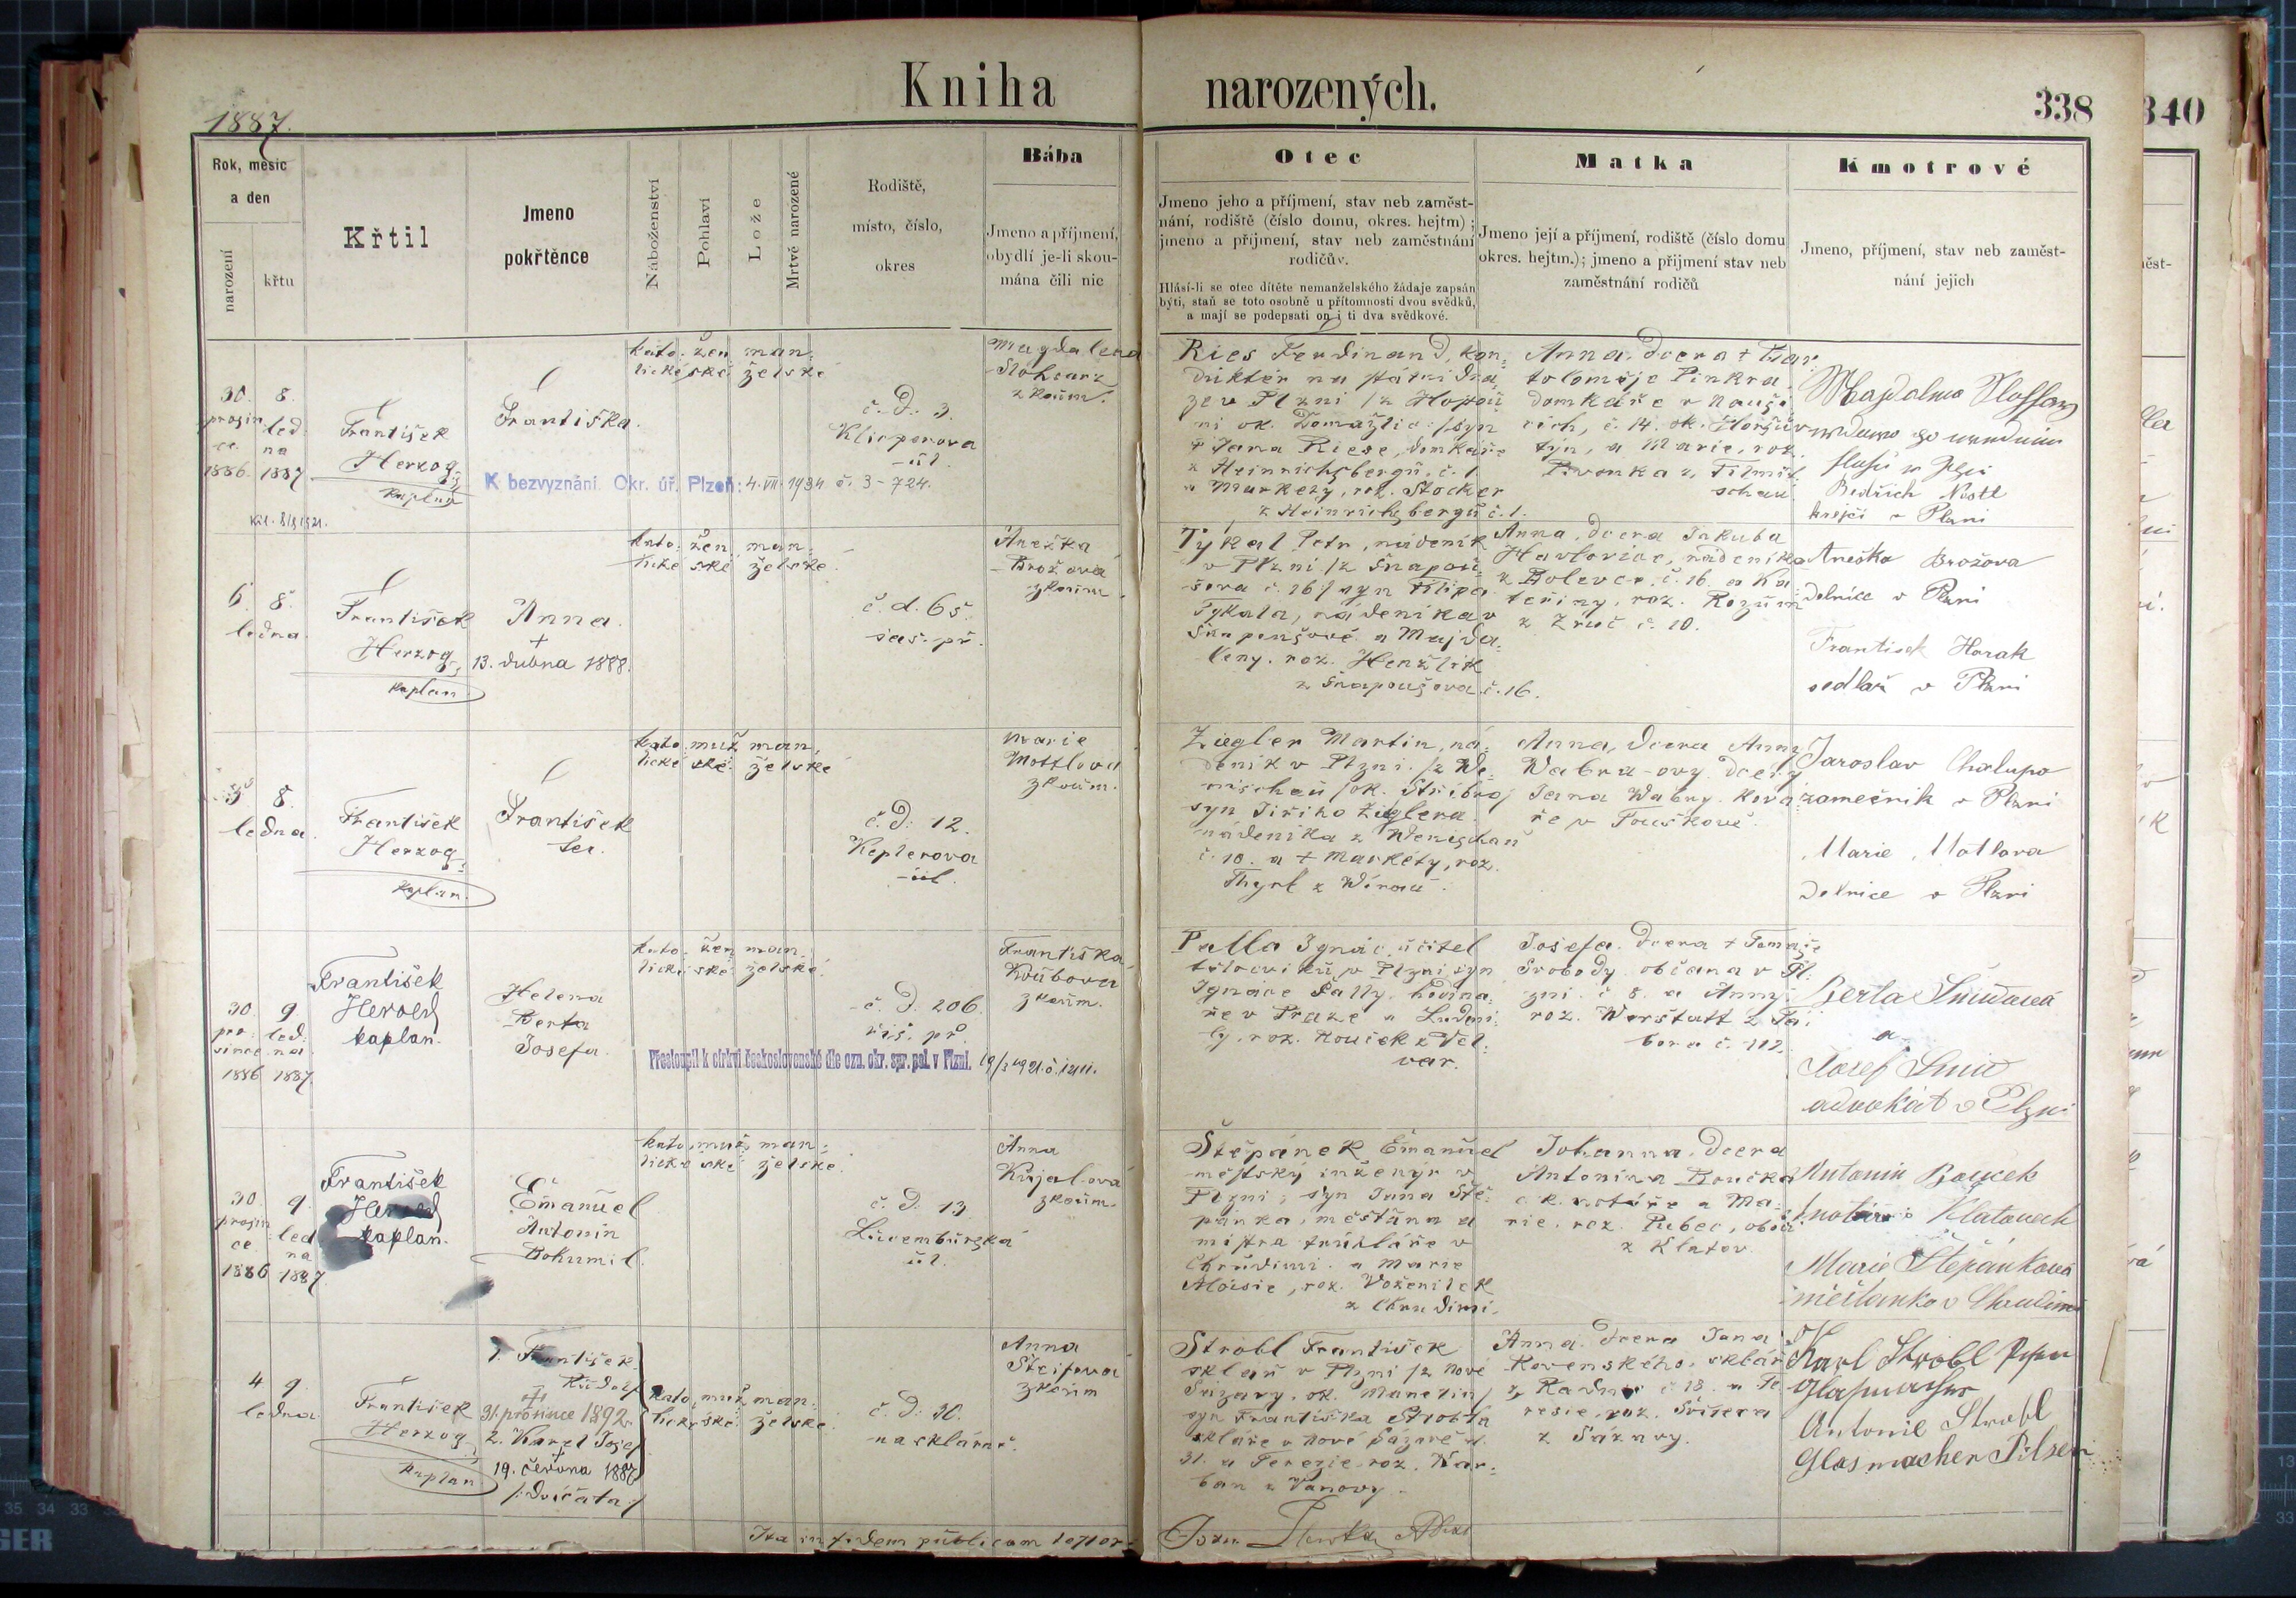 Kniha narozených.
1887.
338
340
Rok, měsíc
a den
narození
křtu
Křtil
Jmeno
pokřtěnce
Náboženství
Pohlaví
Lože
Mrtvě narozené
Rodiště,
místo, číslo,
okres
Bába
Jmeno a příjmení,
obydlí je-li skou-
mána čili nic
Otec
Jmeno jeho a příjmení, stav neb zaměst-
nání, rodiště (číslo domu, okres. hejtm) ;
jmeno a přijmení, stav neb zaměstnání
rodičův.
Hlásí-li se otec dítěte nemanželského žádaje zapsán
býti, staň se toto osobně u přítomnosti dvou svědků,
a mají se podepsati on i ti dva svědkové.
Matka
Jmeno její a příjmení, rodiště (číslo domu
okres. hejtm.); jmeno a přijmení stav neb
zaměstnání rodičů
Kmotrové
Jmeno, příjmení, stav neb zaměst-
nání jejich
30. 8.
prosin led
ce na
1886. 1887
František
Herzog
kaplan
Františka.
kato: žen man:
lické ské želské
č. D. 3.
Klicperova
úl.
Magdalena
zkoum.
K bezvyznání. Okr. úř. Plzeň: 4. VII. 1934 č. 3 - 724.
Ries Ferdinand, kon:
duktér na státní drá
ze v Plzni
ni ok. Domažlic syn
Jana Riese, domkáře
z Heinrichsbergů, č. 1
a Markety, roz. Stöcker
z Heinrichsbergů č. 1.
Anna, dcera + Bar
toloměje Pinkra
domkáře v
rich, č. 14. ok. Horšův
týn, a Marie, roz.
Bedřich Nostl
krejčí v Plzni
6. 8.
ledna
František
Herzog,
kaplan
Anna.
+
13. dubna 1888.
kato: žen man:
lické ské želské.
č. d. 65.
sas. př.
Anežka
Brožová
zkoum.
Týkal Petr, nádeník
v Plzni /z Šnapou
šova č. 16/ syn Filipa
Týkala, nádeníka v
Šnapoušově a Majda
leny, roz. Henžlík
z Šnapoušova č. 16.
Anna, dcera Jakuba
Havlovice, nádeníka
z Bolevce č. 16. a Ka
teřiny, roz. Rozům
z Zruč č. 10.
Anežka Brožova
dělnice v Plzni
František Horak
sedlář v Plzni
5 8.
ledna.
František
Herzog,
kaplan.
František
Ser.
kato: muž man:
lické ské. želské
č. D. 12.
Keplerova
úl.
Marie
Mottlová
zkoum.
Ziegler Martin, ná:
deník v Plzni /z We:
nischau /ok. Stříbro/
syn Jiřího Zieglera
nádeníka z Wenischau
č. 10. a + Markéty, roz.
Thyrl z
Anna, dcera Anny
Wabra-ovy dcery
Jana Wabry, ková
ře v Touškově.
Jaroslav Chalupa
zámečník v Plzni
Marie Motlova
Dělnice v Plzni
30. 9.
pro: led:
since na
1886 1887.
František
Herold
kaplan.
Helena
Berta
Josefa.
kato: žen man.
lické ské želské.
č. D. 206.
říš. př.
Františka
Koubova
zkoum.
Přestoupil k církvi československé dle ozn. okr. spr. pol. v Plzni. 19/3 1921.
Palla Ignác, učitel
tělocviků v Plzni, syn
Ignáce Pally, hodina:
ře v Praze a Ludmi:
ly, roz. Houšek z Vel:
var.
Josefa, dcera + Tomáše
Svobody, občana v Pl:
zni č. 8. a Anny
roz. Werstatt z Tá:
bora č. 112.
Berta Šmidová
a
Josef Šmid
advokát v Plzni
30 9.
prosin led
ce na
1886 1887
František
Herold
kaplan.
Emanuel
Antonín
Bohumil.
kato: muž. man:
lické ské želské.
č. D. 13
Lucemburgská
úl.
Anna
Kůjalová
zkoum.
Štěpánek Emanuel
městský inženýr v
Plzni, syn Jana Ště:
pánka, měšťana a
mistra truhláře v
Chrudimi a Marie
Aloisie, roz. Voženílek
z Chrudimi.
Johanna, dcera
Antonína Boučka
c. k. notáře a Ma:
rie, roz. Pubec, oba
z Klatov
Antonín Bouček
notář v Klatovech
Marie Štěpánková
měšťanka v Chrudimi
4 9
ledna
František
Herzog
kaplan
1. František
Rudolf
31. prosince 1892.
2. Karel Josef
+
19. června 1887
/:dvojčata:/
kato: muž man:
lické ské želské
č. D. 30.
na sklárně.
Anna
Šteifova
zkoum
Strobl František
sklář v Plzni /z Nové
Sázavy, ok. Manetin/
syn Františka Strobla
skláře v Nové Sázavě č.
31. a Terezie roz. Kor:
ban z Vanovy.
Anna, dcera Jana
Rovenského, skláře
z Radnic č 18. a Te
resie, roz.
z Sázavy.
Karl Strobl
Glasmacher
Antonie Strobl
Glasmacher Pilsen
Ita in fidem publicam